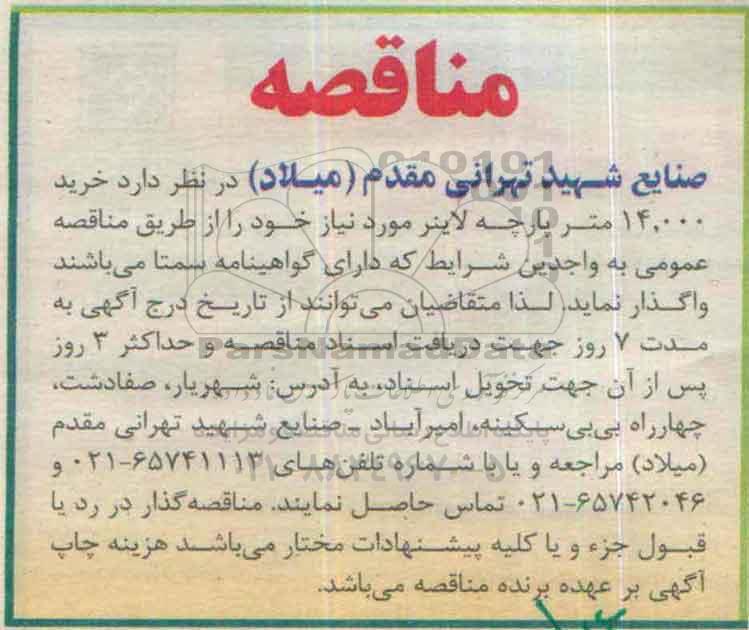 مناقصه
صنایع شهید تهرانی مقدم (میلاد) در نظر دارد خرید
۱۴,۰۰۰ متر پارچه لاینر مورد نیاز خود را از طریق مناقصه
عمومی به واجدین شرایط که دارای گواهینامه سمتا می‌باشند
واگذار نماید. لذا متقاضیان می‌توانند از تاریخ درج آگهی به
مدت ۷ روز جهت دریافت اسناد مناقصه و حداکثر ۳ روز
پس از آن جهت تحویل اسناد، به آدرس: شهریار، صفادشت،
چهارراه بی‌بی‌سکینه، امیرآباد - صنایع شهید تهرانی مقدم
(میلاد) مراجعه و یا با شماره تلفن‌های ۶۵۷۴۱۱۱۳-۰۲۱ و
۶۵۷۴۲۰۴۶-۰۲۱ تماس حاصل نمایند. مناقصه‌گذار در رد یا
قبول جزء و یا کلیه پیشنهادات مختار می‌باشد هزینه چاپ
آگهی بر عهده برنده مناقصه می‌باشد.
ParsNamadData